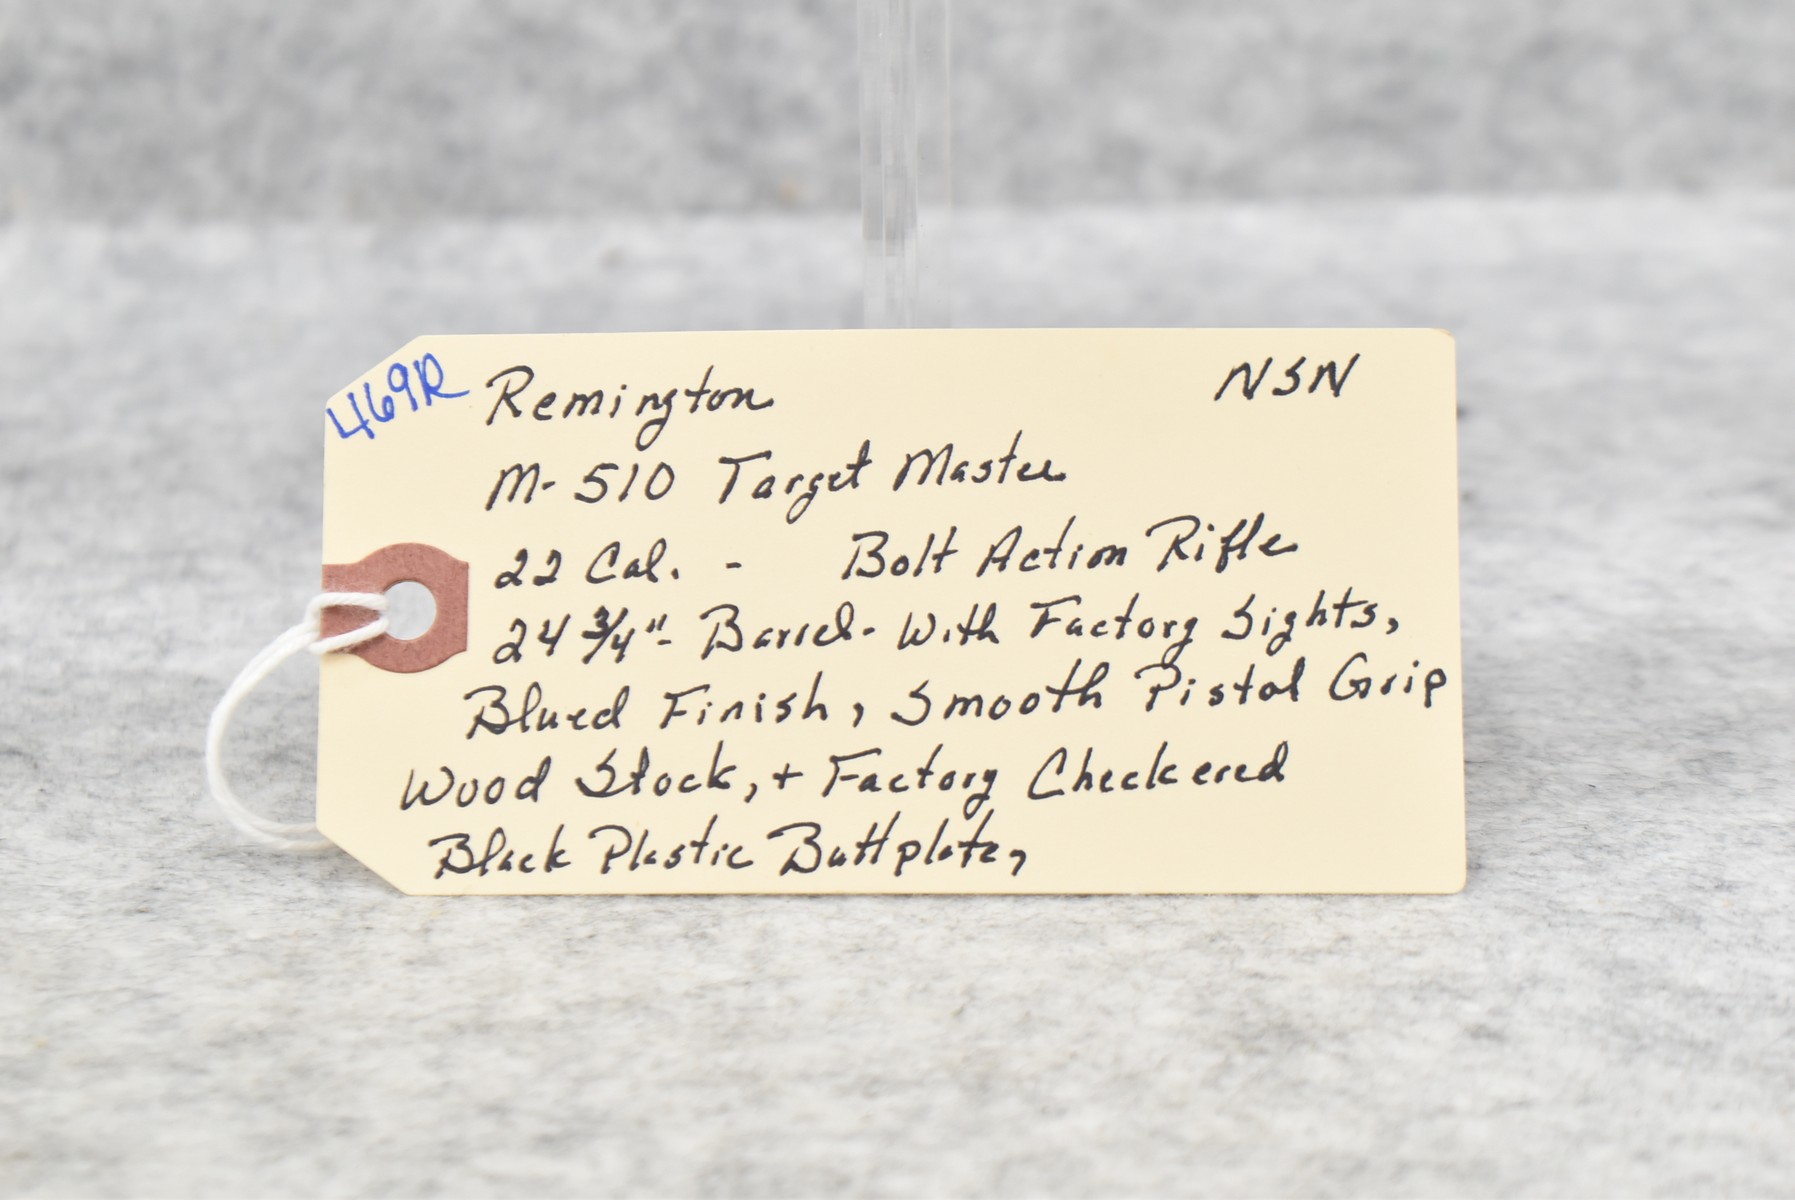 469R Remington NSN
M-510 Target Master
22 Cal. - Bolt Action Rifle
24 3/4"- Barrel- With Factory Sights,
Blued Finish, Smooth Pistol Grip
Wood Stock, + Factory Checkered
Black Plastic Buttplate,